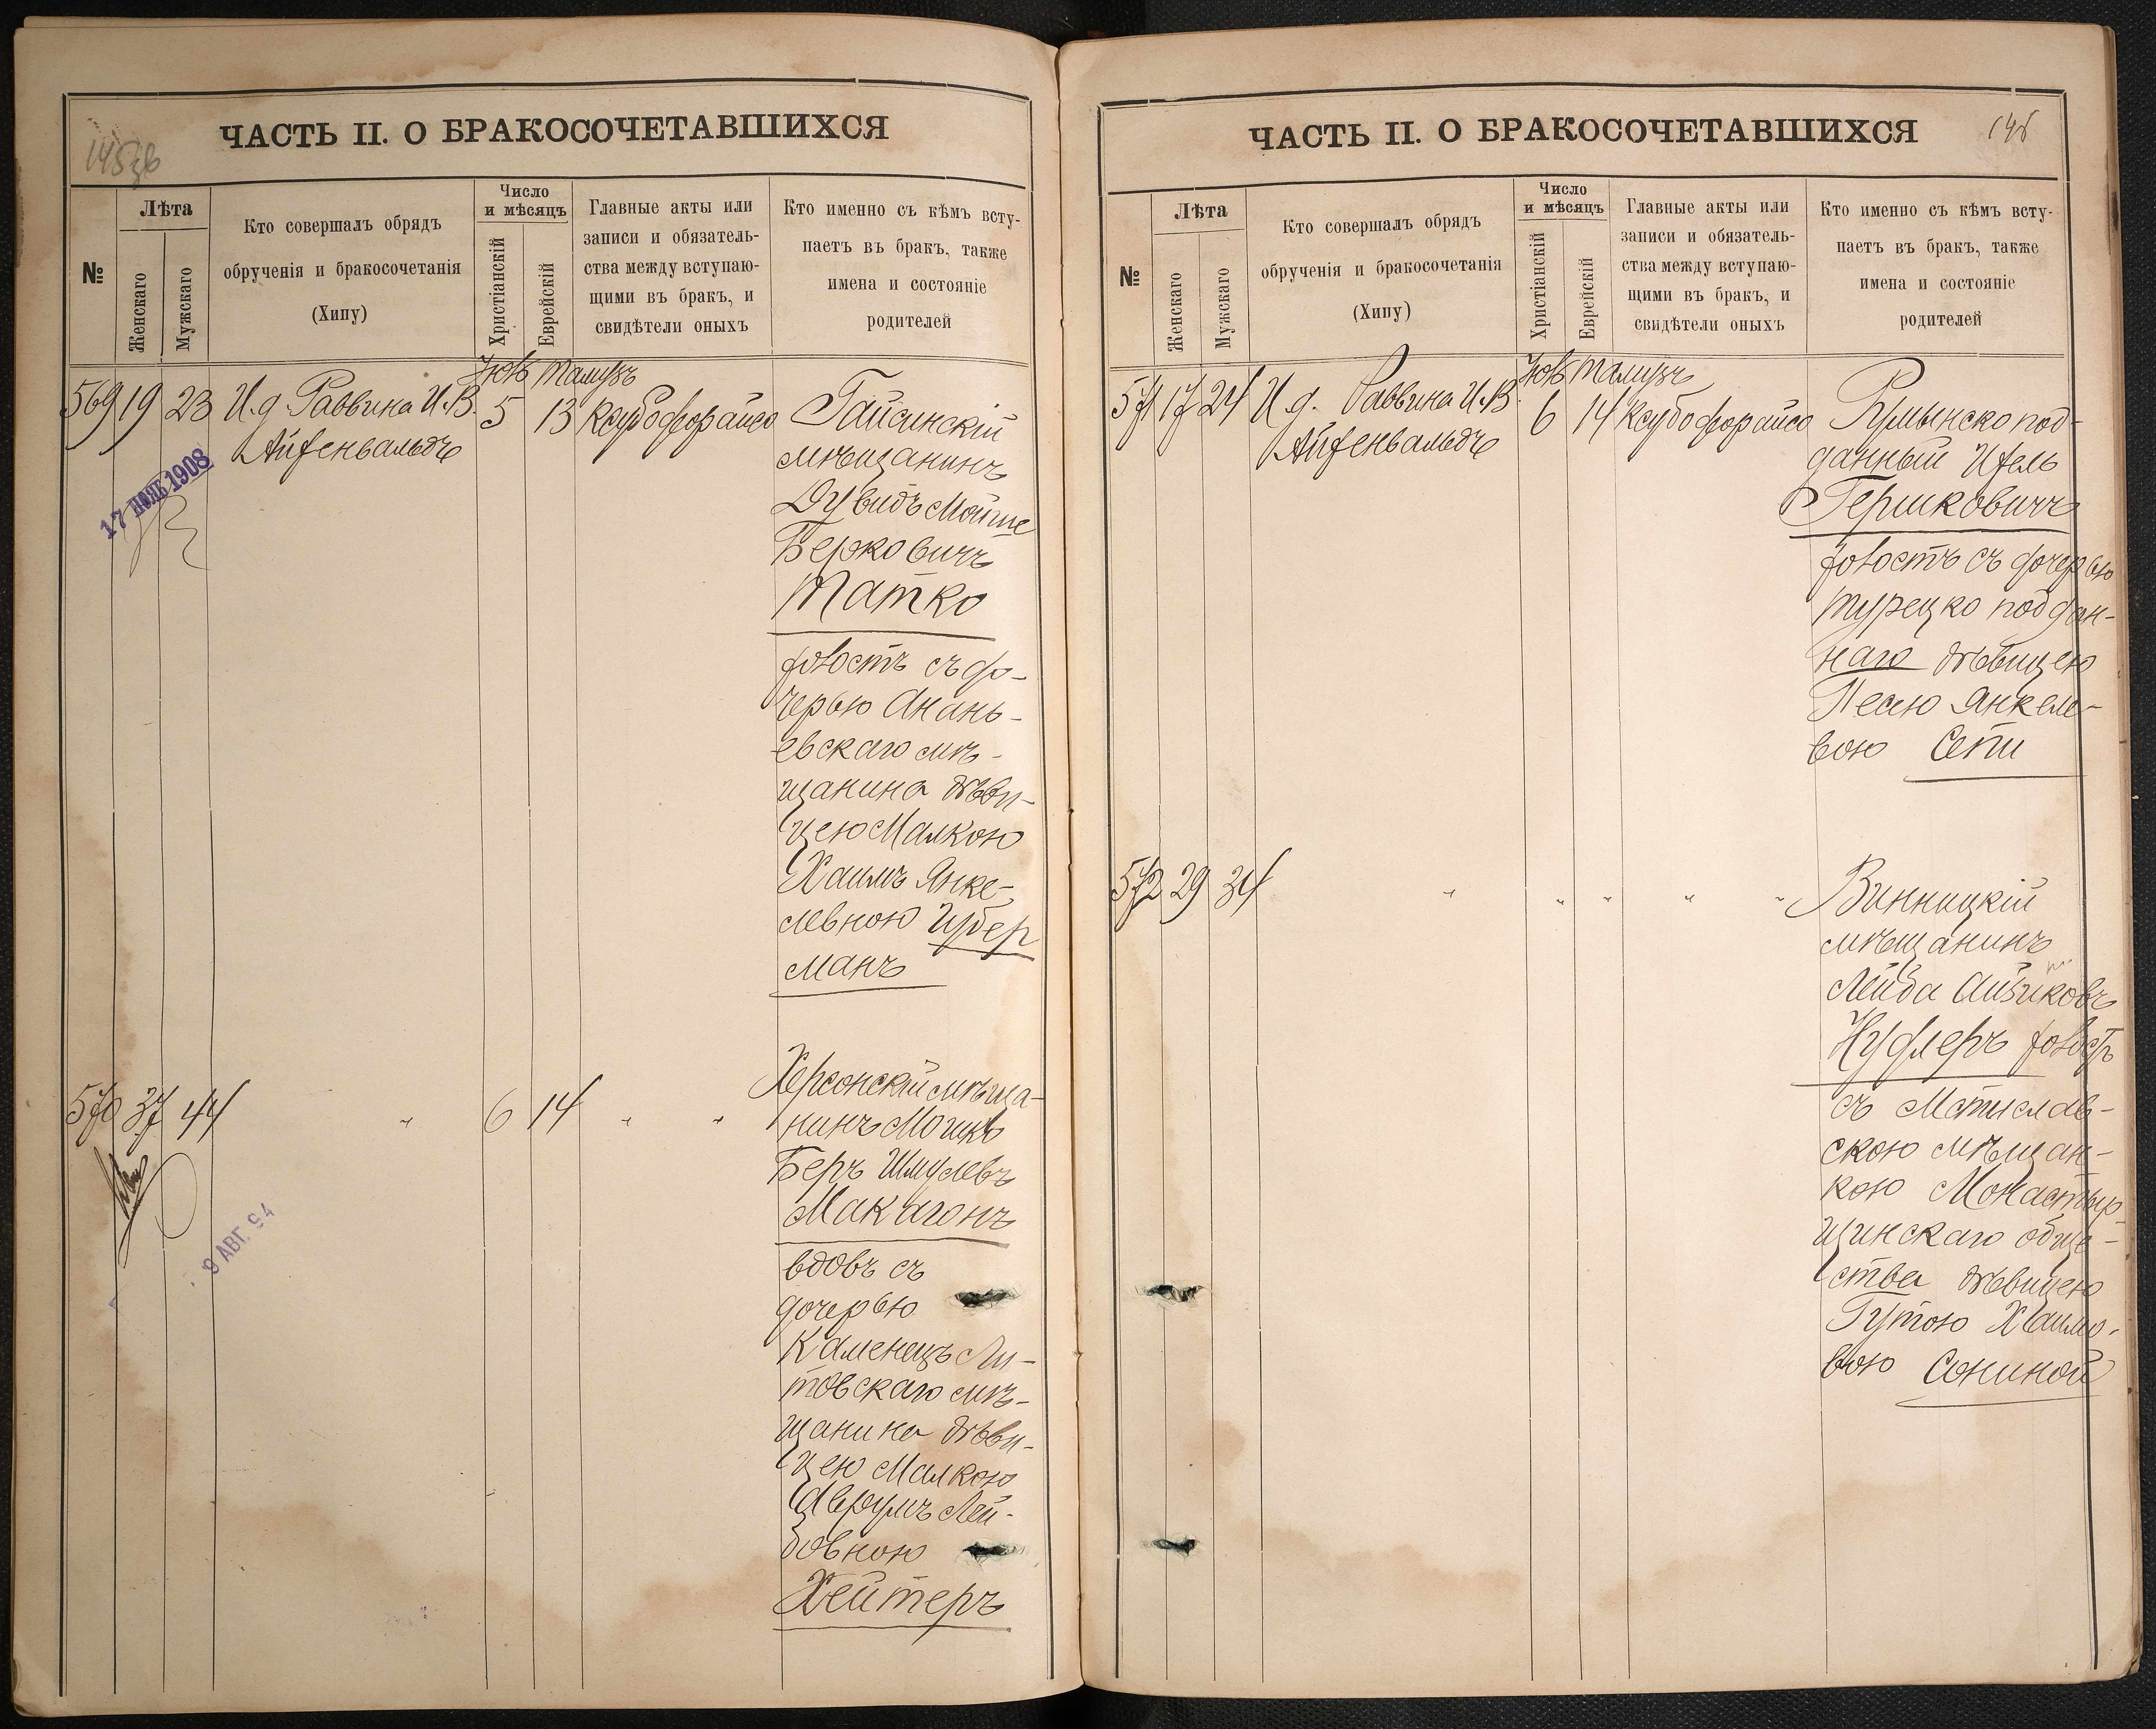 ЧАСТЬ II. О БРАКОСОЧЕТАВШИХСЯ
145 об
№
Лѣта
Женскаго
Мужскаго
Кто совершалъ обрядъ
обрученія и бракосочетанія
(Хипу)
Число
и мѣсяцъ
Христіанскій
Еврейскій
Главные акты или
записи и обязатель-
ства между вступаю-
щими въ бракъ, и
свидѣтели оныхъ
Кто именно съ кѣмъ всту-
паетъ въ бракъ, также
имена и состояніе
родителей
Тамузъ
569 19 23 И.д. Раввина И.В. 5 13
Айзенвальдъ
17 НОЯБ 1908
Гайсинскій
мѣщанинъ
Дувидъ Мойше
Берковичъ
Матко
холостъ съ до-
черью Анань-
евскаго мѣ-
щанина дѣви-
цею Малкою
Хаимъ Янке-
левною Цубер
манъ
570 37 44 " 6 14 " "
9 АВГ. 94
Херсонскій мѣща-
нинъ Мошко
Беръ Шмулевъ
Макагонъ
вдовъ съ
дочерью
Каменецъ Ли-
товскаго мѣ-
щанина дѣви-
цею Малкою
Лей-
бовною
Хейтеръ
ЧАСТЬ II. О БРАКОСОЧЕТАВШИХСЯ
146
№
Лѣта
Женскаго
Мужскаго
Кто совершалъ обрядъ
обрученія и бракосочетанія
(Хипу)
Число
и мѣсяцъ
Христіанскій
Еврейскій
Главные акты или
записи и обязатель-
ства между вступаю-
щими въ бракъ, и
свидѣтели оныхъ
Кто именно съ кѣмъ всту-
паетъ въ бракъ, также
имена и состояніе
родителей
Тамузъ
571 17 24 И.д. Раввина И.В. 6 14
Айзенвальдъ
Румынско под-
данный Ицель
Гершковичъ
холостъ съ дочерью
турецко поддан-
наго дѣвицею
Песею Янкеле-
вою Сепи
572 29 34 " " " " "
Винницкій
мѣщанинъ
Лейба Айзиковъ
Нуфлеръ холостъ
съ Мстислав-
скою мѣщан-
кою Монастыр-
щинскаго обще-
ства дѣвицею
Гутою Хаимо-
вою Сониной